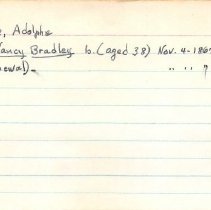 , Adolphe
Nancy Bradley b. (aged 38) Nov. 4-186
newal). " " "